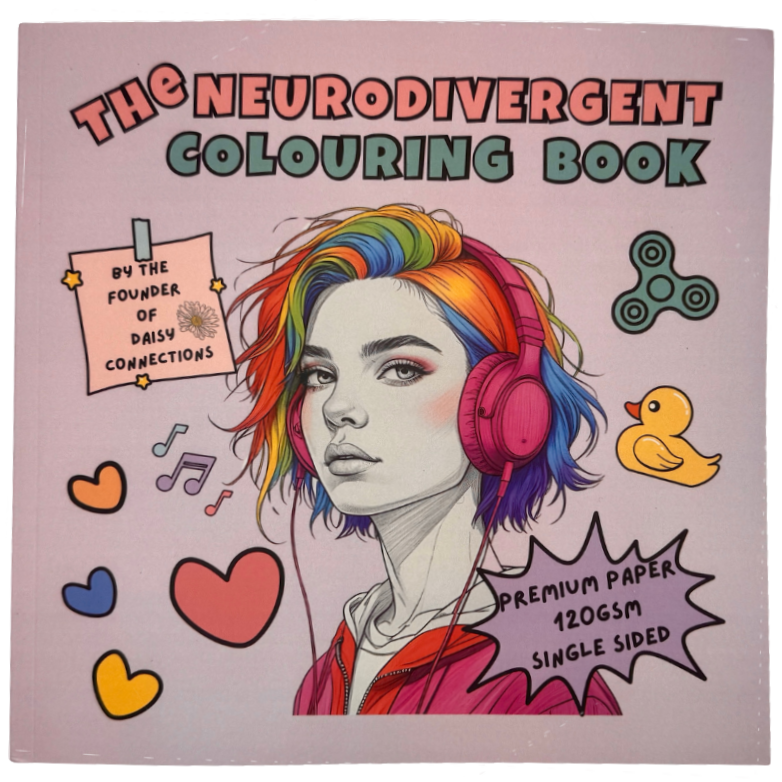 THe NEURODIVERGENT
COLOURING BOOK
BY THE
FOUNDER
OF
DAISY
CONNECTIONS
PREMIUM PAPER
120GSM
SINGLE SIDED